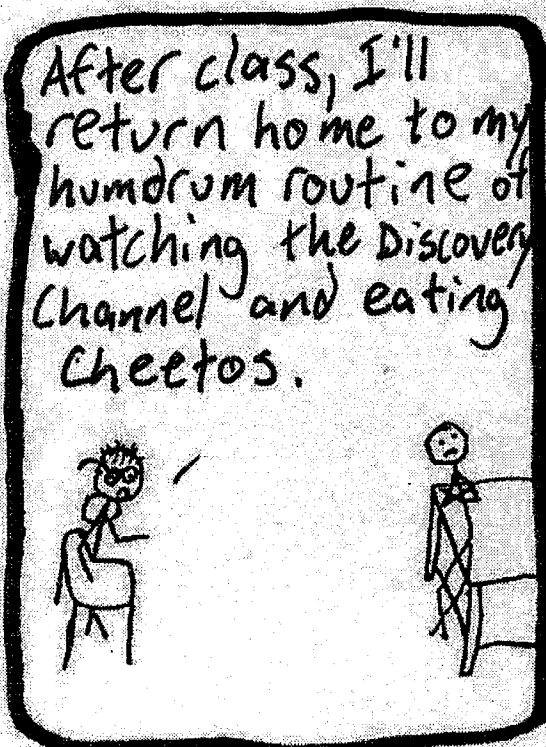 After class, I'll
return home to my
humdrum routine of
watching the Discovery
Channel and eating
Cheetos.